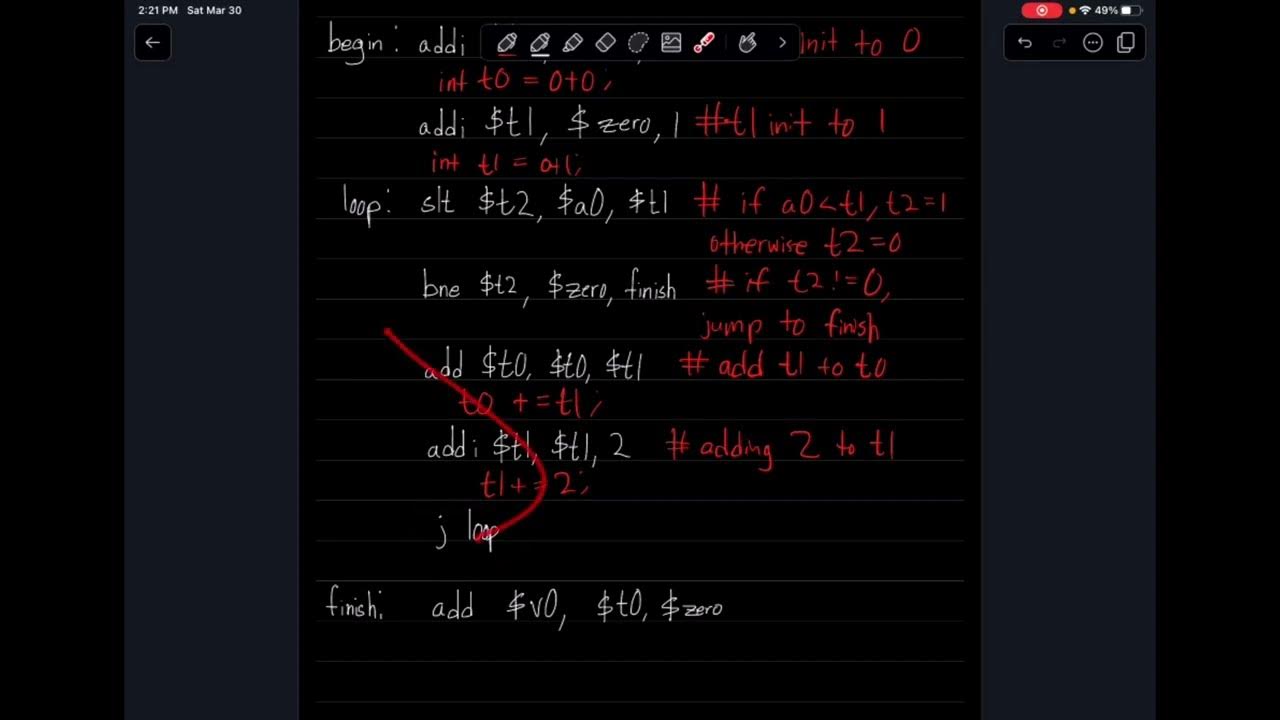 2:21 PM Sat Mar 30
49%
begin: addi init to 0
int t0 = 0+0;
addi $t1, $zero, 1 #t1 init to 1
int t1 = 0+1;
loop: slt $t2, $a0, $t1 # if a0<t1, t2=1
otherwise t2=0
bne $t2, $zero, finish # if t2!=0,
jump to finish
add $t0, $t0, $t1 # add t1 to t0
t0 +=t1;
addi $t1, $t1, 2 # adding 2 to t1
t1+=2;
j loop
finish: add $v0, $t0, $zero